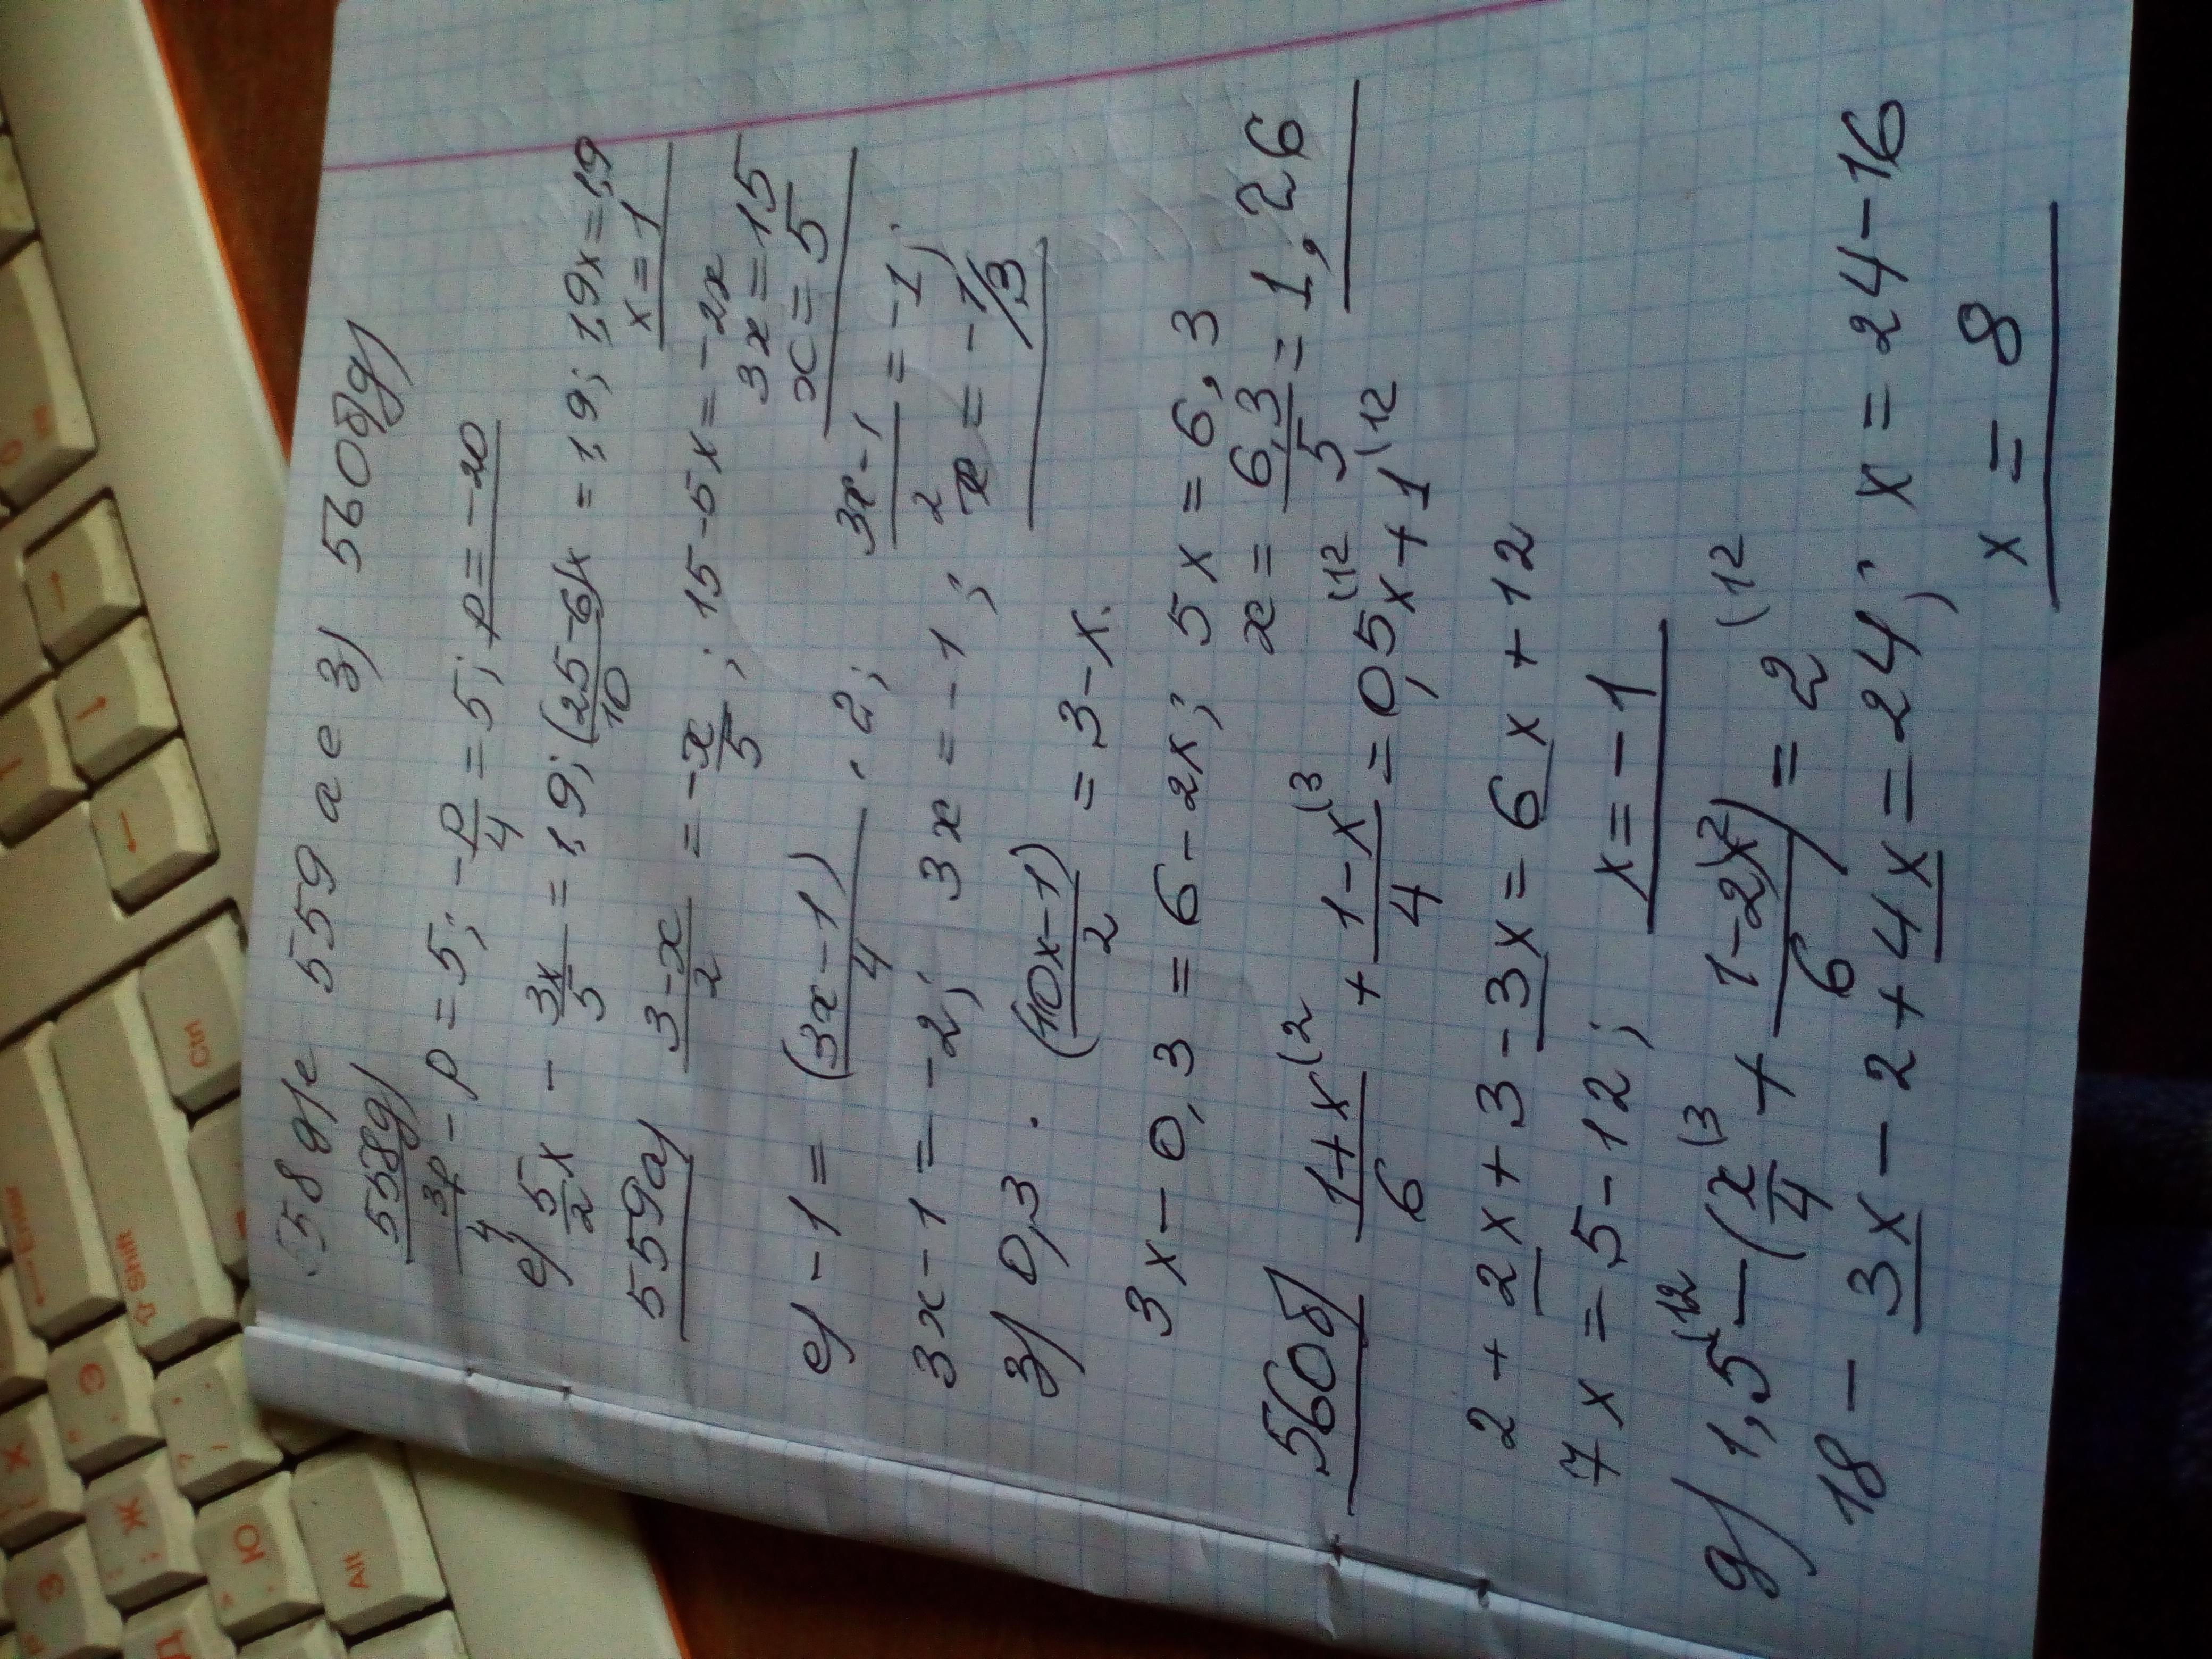 558 д)е 559 а е з) 560б)д)
558д)
3p/4 - p = 5; -p/4 = 5; p = -20
е) 5/2 x - 3x/5 = 1,9; (25-6)x/10 = 1,9; 1,9x = 1,9
x = 1
559а) 3-x/2 = -x/5; 15-5x = -2x
3x = 15
x = 5
е) -1 = (3x-1)/4 · 2; 3x-1/2 = -1;
3x-1 = -2; 3x = -1; x = -1/3
з) 0,3 · (10x-1)/2 = 3-x.
3x - 0,3 = 6 - 2x; 5x = 6,3
x = 6,3/5 = 1,26
560б) 1+x/6 (2 + 1-x/4 (3 = 0,5x (12 + 1 (12
2 + 2x + 3 - 3x = 6x + 12
7x = 5 - 12; x = -1
д) 1,5 (12 - (x/4 (3 + 1-2x/6 (2) = 2 (12
18 - 3x - 2 + 4x = 24; x = 24-16
x = 8
Enter
Shift
Ctrl
Alt
Х
Э
Ж
Ю
З
Д